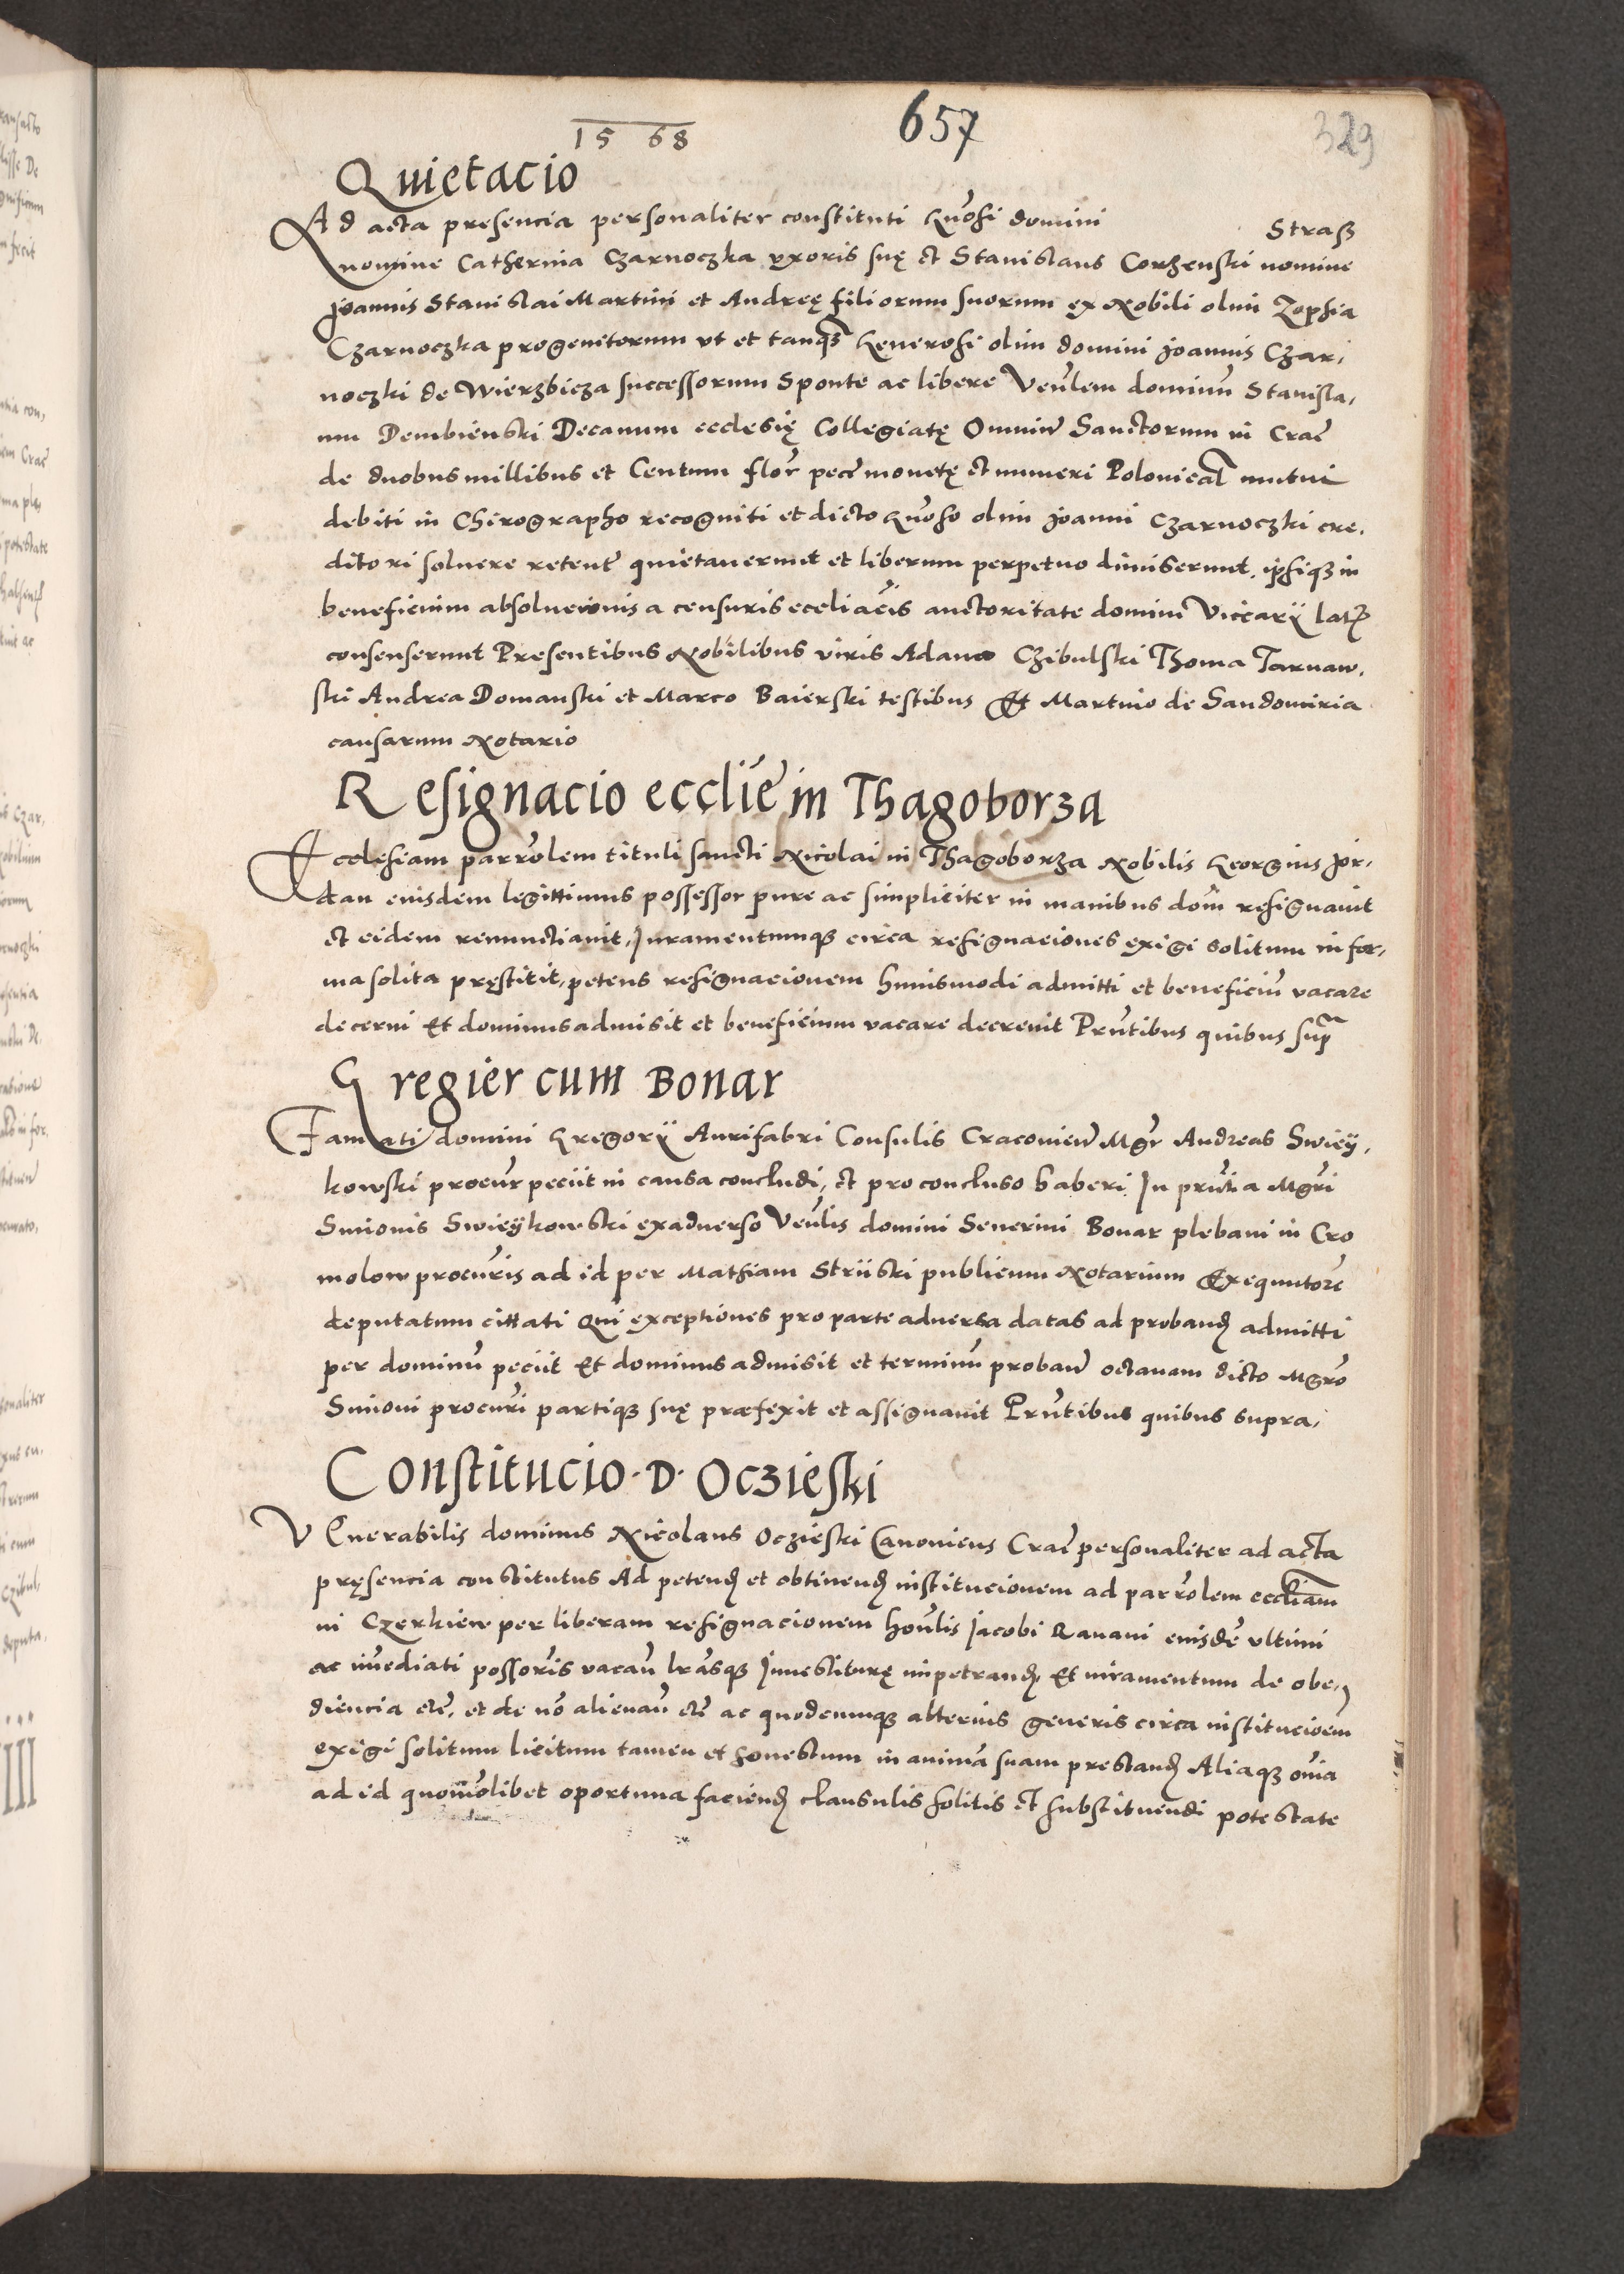 1568
657
329
Quietacio
Ad acta presencia personaliter constituti Gn̄osi domini Strasz
nomine Catherina Czarnoczka vxoris suę et Stanislaus Corzenski nomine
Joannis Stanislai Martini et Andreę filiorum suorum ex Nobili olim Zophia
Czarnoczka progenitorum vt et tanq̃ȝ Generosi olim domini Joannis Czar,
noczki de Wierzbicza successorum Sponte ac libere Ven̄lem dominū Stanisla,
um Dembienski Decanum ecclesię Collegiatę Omniuͫ Sanctorum in Crac̄
de duobus millibus et Centum flor̄ pecc̄ monetę et numeri Polonical̄ mutui
debiti in Chirographo recogniti et dicto Gn̄oso olim Joanni Czarnoczki cre,
ditori soluere retent̄ quietauerunt et liberum perpetuo dimiserunt, ipsiqȝ in
beneficium absolucionis a censuris eccl̄iacis auctoritate domini Vicarii lat?
consenserunt Presentibus Nobilibus viris Adamo Czibulski Thoma Tarnaw,
ski Andrea Domanski et Marco Baierski testibus Et Martino de Sandomiria
causarum Notario
Resignacio eccl̄ie in Thagoborza
Ecclesiam parr̄olem tituli sancti Nicolai in Thagoborza Nobilis Georgius Jor,
dan eiusdem legittimus possessor pure ac simpliciter in manibus dom̄ resignauit
et eidem renunctiauit, Juramentumqȝ circa resignaciones exigi solitum in for,
ma solita pręstitit, petens resignacionem huiusmodi admitti et beneficiū vacare
decerni Et dominus admisit et beneficium vacare decreuit Prn̄tibus quibus supᷓ
Gregier cum Bonar
Famati domini Gregorii Aurifabri Consulis Cracouien̄ Mgr̄ Andreas Swiey,
kowski procur̄ peciit in causa concludi, et pro concluso haberi In prn̄tia Mgr̄i
Simonis Swieykowski ex aduerso Ven̄lis domini Seuerini Bonar plebani in Cro
molow procur̄is ad id per Mathiam Striiski publicum Notarium Exequutorē
deputatum cittati Qui exceptiones pro parte aduersa datas ad proband̄ admitti
per dominū peciit Et dominus admisit et terminū proban̄ octauam dicto Mgr̄o
Simoni procur̄i partiqȝ suę præfexit et assignauit Prn̄tibus quibus supra,
Constitucio · D · Oczieski
VEnerabilis dominus Nicolaus Oczieski Canonicus Crac̄ personaliter ad acta
pręsencia constitutus Ad petend̄ et obtinend̄ institucionem ad parr̄olem eccl̄iam
in Czerkiew per liberam resignacionem hon̄lis Jacobi Rauani eiusdē vltimi
ac im̄ediati possor̄is vacan̄ l̄rasqȝ Inuestiturę impetrand̄, Et iuramentum de obe,
diencia etc̄, et de no̅ alienan̄ etc̄ ac quodcumqȝ alterius generis circa institucioem
exigi solitum licitum tamen et honestum in animā suam prestand̄ Aliaqȝ om̄ia
ad id quomōlibet oportuna faciend̄ clausulis solitis et substituendi potestate